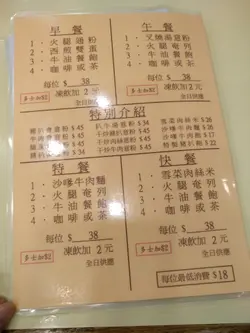 早餐
1．火腿通粉
2．西煎雙蛋
3．牛油餐飽
4．咖啡或茶
每位 $ 38
多士加$2 凍飲加 2 元
午餐
1．叉燒湯意粉
2．火腿奄列
3．牛油餐飽
4．咖啡或茶
每位 $ 38
凍飲加 2 元
全日供應
特別介紹
$45
$45
$45
$45
$34
$36
$17
$22
特餐
1．沙嗲牛肉麵
2．火腿奄列
3．牛油餐飽
4．咖啡或茶
每位 $ 38
凍飲加 2 元
多士加$2 全日供應
快餐
1．雪菜肉絲米
2．火腿奄列
3．牛油餐飽
4．咖啡或茶
每位 $ 38
多士加$2 凍飲加 2 元
全日供應
每位最低消費 $18